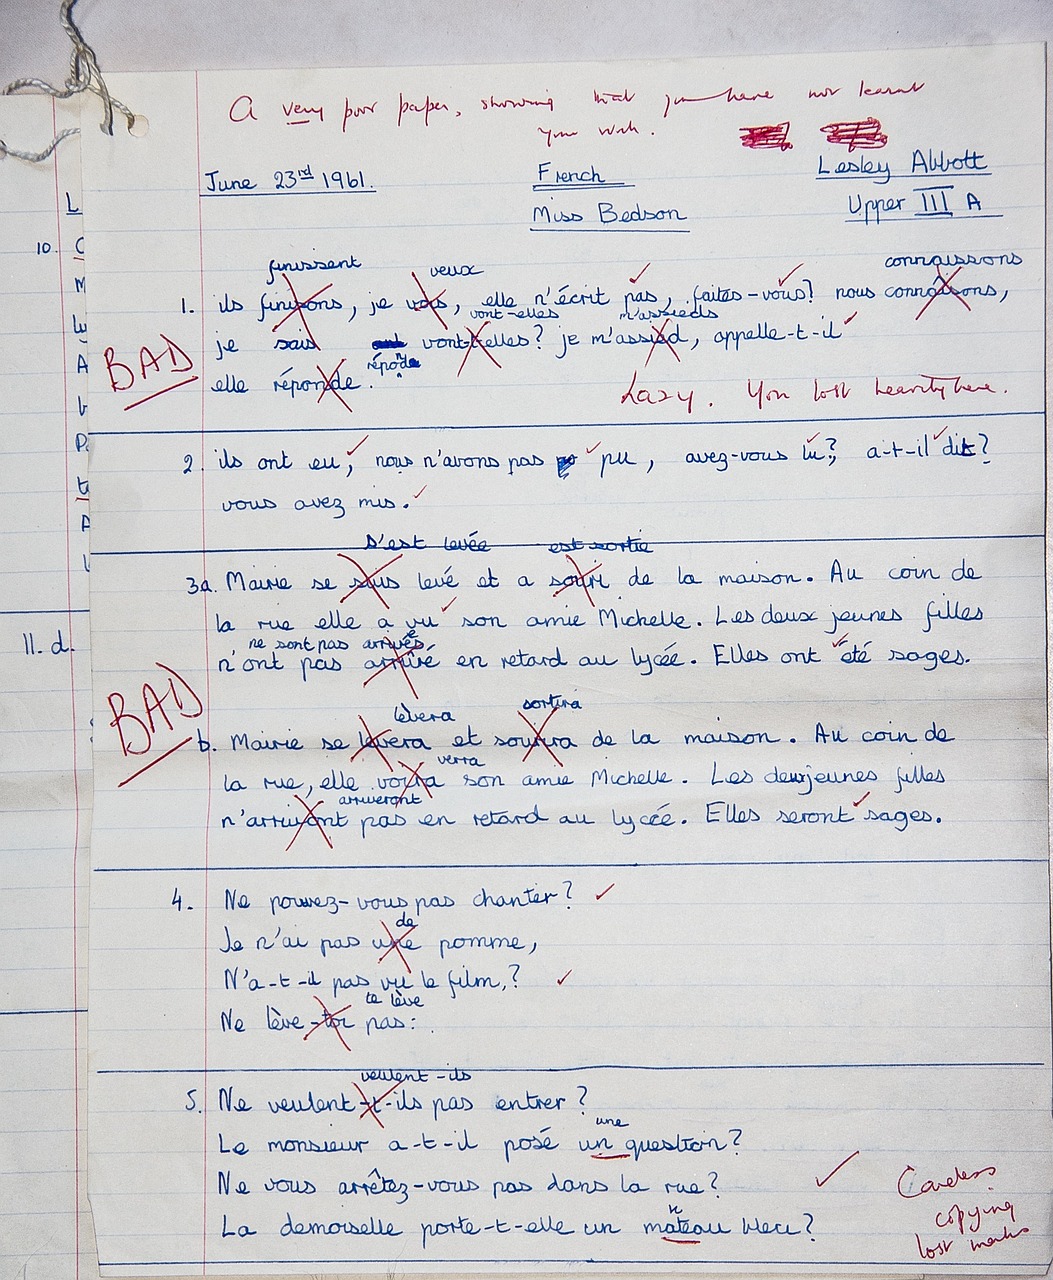 A very poor paper, showing that you have not learnt
your work.
June 23rd 1961. French Lesley Abbott
Miss Bedson Upper III A
finissent veux connaissons
1. ils finisons, je vois, elle n'écrit pas, faites-vous? nous connaisons,
vont-elles m'assieds
BAD je sais vont-t-elles? je m'assied, appelle-t-il
réponde
elle réponde.
Lazy. You lost heavily here.
2. ils ont eu, nous n'avons pas pu, avez-vous lu?, a-t-il dit?
vous avez mis.
s'est levée est sortie
3a. Mairie se suis levé et a souri de la maison. Au coin de
la rue elle a vu son amie Michelle. Les deux jeunes filles
ne sont pas arrivées
n'ont pas arrivé en retard au lycée. Elles ont été sages.
BAD
lèvera sortira
b. Mairie se levera et sourira de la maison. Au coin de
verra
la rue, elle voira son amie Michelle. Les deuxjeunes filles
arriveront
n'arrivont pas en retard au lycée. Elles seront sages.
4. Ne pouvez-vous pas chanter?
de
Je n'ai pas une pomme,
N'a-t-il pas vu le film,?
te lève
Ne lève-toi pas:
veulent-ils
5. Ne veulent-t-ils pas entrer?
une
Le monsieur a-t-il posé un question?
Ne vous arrêtez-vous pas dans la rue?
n
La demoiselle porte-t-elle un mateau bleu?
Careless
copying
lost marks
10.
11. d.